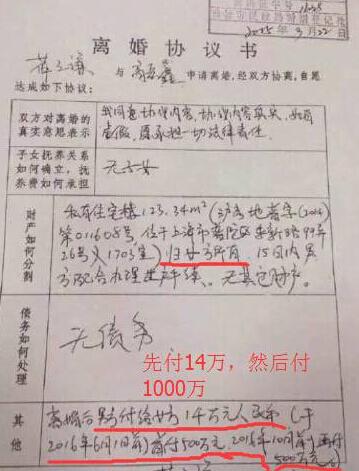 离婚协议书
与 申请离婚,经双方协商,自愿
达成如下协议:
双方对离婚的
真实意思表示
我同意协议内容,协议内容真实,如有
虚假,愿承担一切法律责任。
子女抚养关系
如何确立,抚
养费如何承担
无子女
财产如何分割
私有住宅楼123.34m²(沪房地普字(2014)
第011608号,位于上海市普陀区 路99弄
26号 1703室)归女方所有,15日内男
方配合办理过户手续。无其它财产。
债务如何处理
无债务
先付14万,然后付
1000万
其他
离婚后男方付给女方1千万元人民币(于
2016年6月1日前首付500万元,2016年10月前再付
500万元